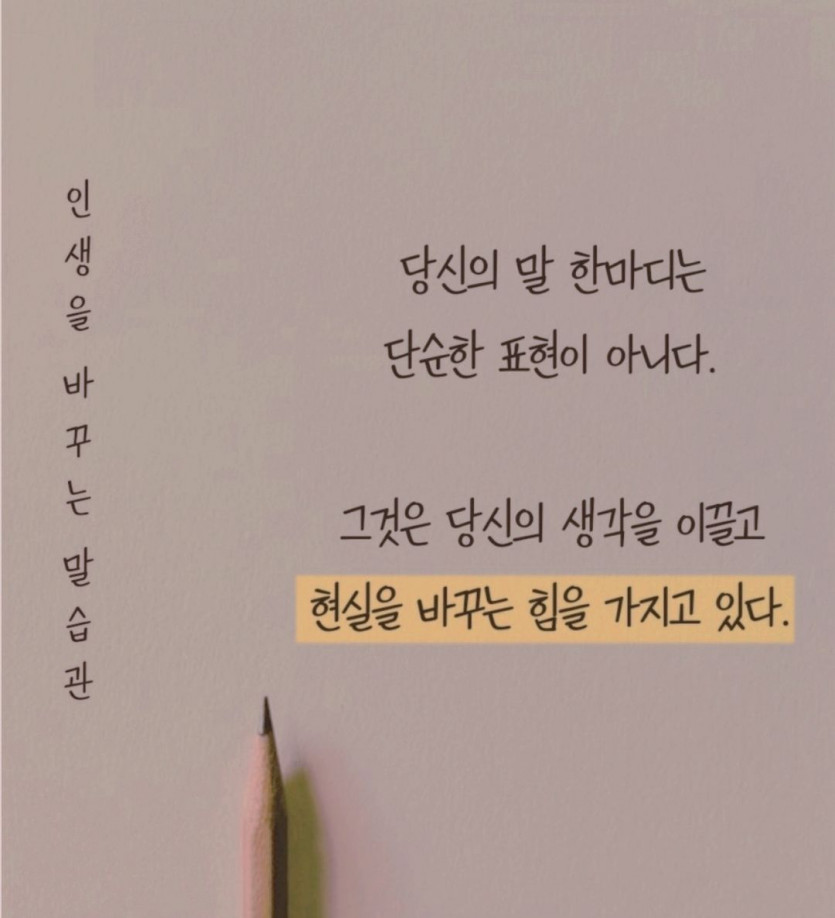 인생을 바꾸는 말습관
당신의 말 한마디는
단순한 표현이 아니다.
그것은 당신의 생각을 이끌고
현실을 바꾸는 힘을 가지고 있다.